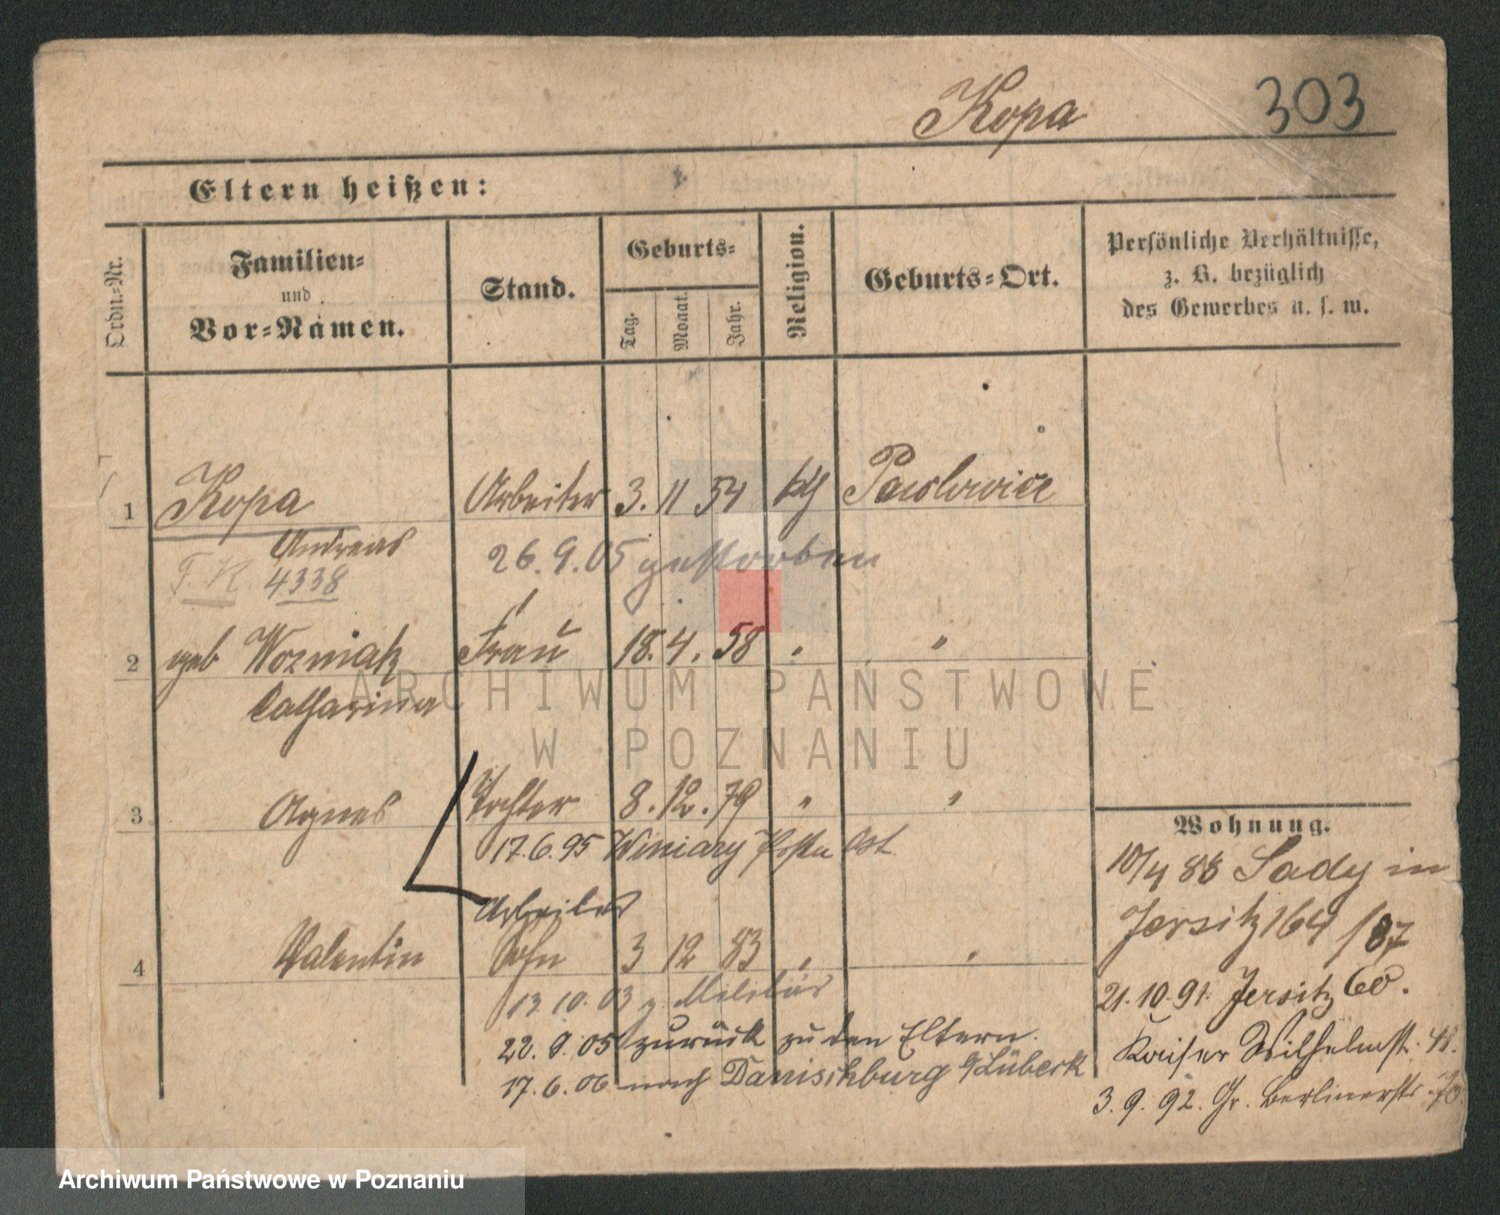 Kopa 303
Eltern heißen:
Ordn.-Nr.
Familien-
und
Vor-Namen.
Stand.
Geburts-
Tag.
Monat.
Jahr.
Religion.
Geburts-Ort.
Persönliche Verhältnisse,
z. B. bezüglich
des Gewerbes u. s. w.
1 Kopa Arbeiter 3. 11 54 kth Pawlowice
Andreas 26.9.05 gestorben
4338
2 geb Wozniak Frau 18. 4. 58 " "
Catharina
3 Agnes Tochter 8. 12. 79 " "
17.6.95 Winiary Posen Ost
Arbeiter
4 Valentin Sohn 3 12 83 " "
13.10.03 z. Militär
22.9.05 zurück zu den Eltern.
17.6.06 nach Danischburg b/Lübeck
Wohnung.
10/4 88 Sady in
Jersitz 164 /87
21.10.91. Jersitz 60.
Kaiser Wilhelmst. 41.
3.9.92. Gr. Berlinerstr. 70
ARCHIWUM PAŃSTWOWE
W POZNANIU
Archiwum Państwowe w Poznaniu